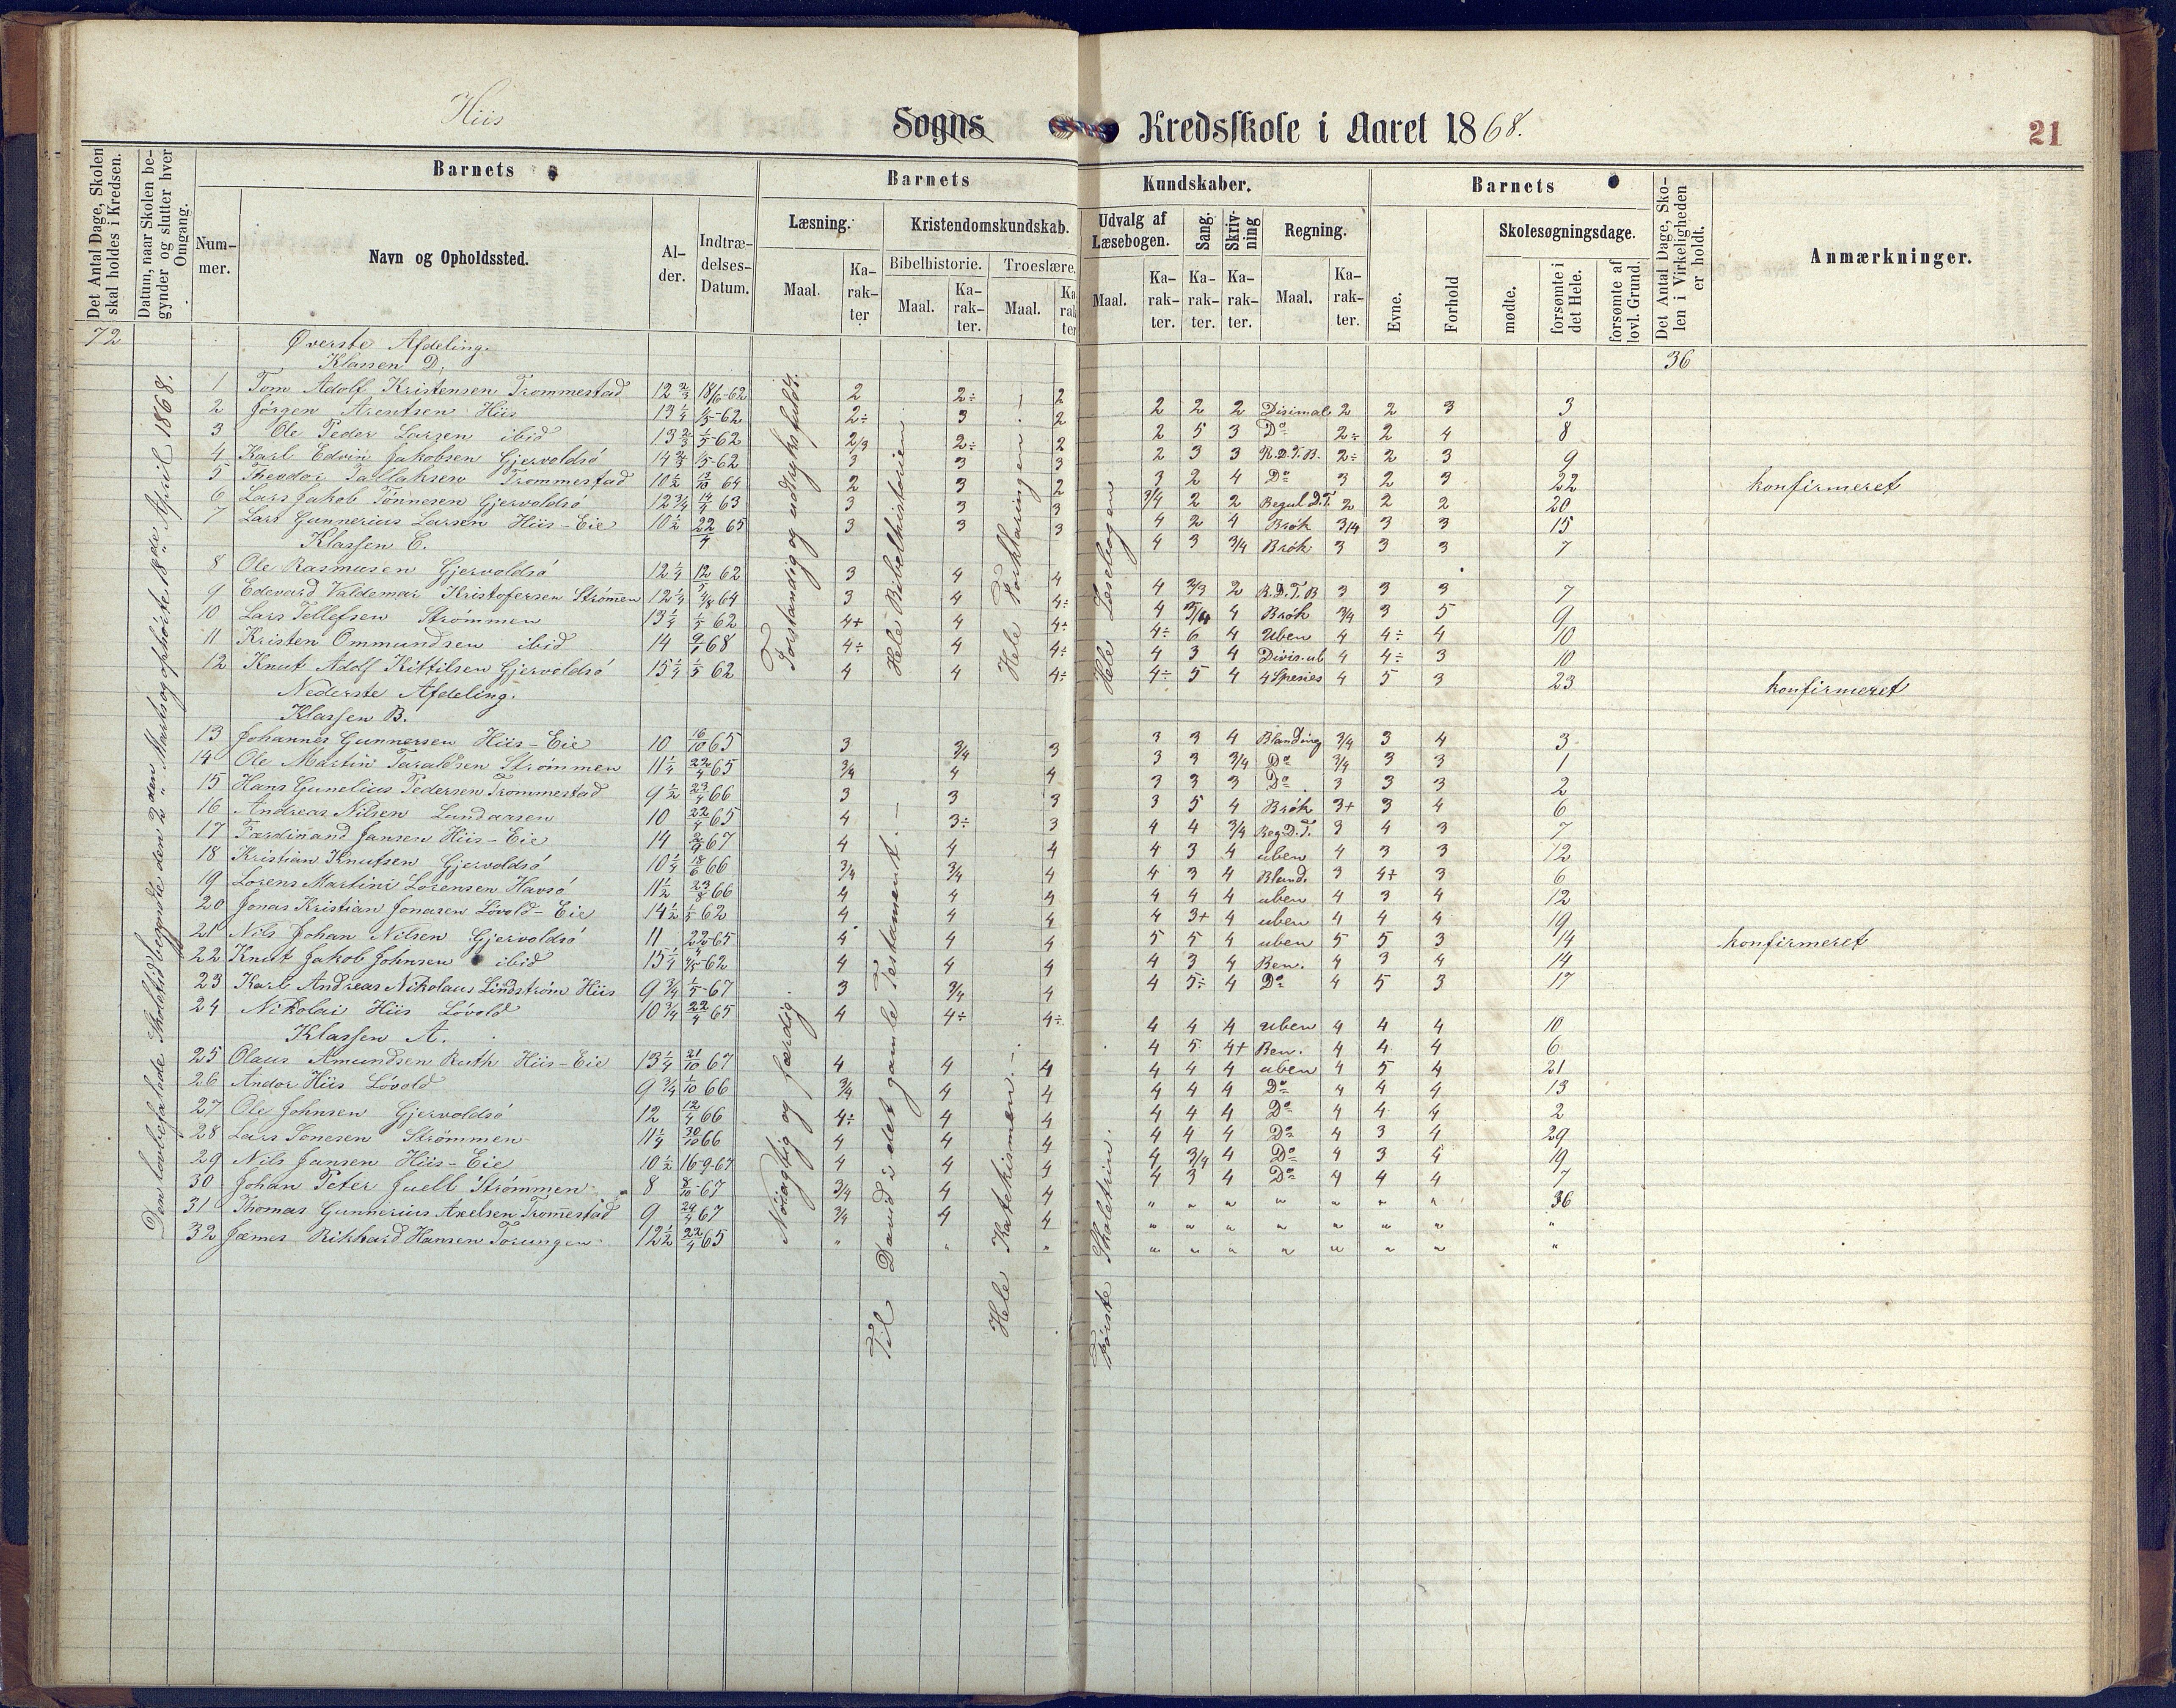 Hiis Sogns Kredsskole i Aaret 1868. 21
Det Antal Dage, Skolen skal holdes i Kredsen.
Datum, naar Skolen begynder og slutter hver Omgang.
Barnets
Nummer.
Navn og Opholdssted.
Alder.
Indtrædelses-Datum.
Barnets
Læsning.
Maal.
Karakter
Kristendomskundskab.
Bibelhistorie.
Maal.
Karakter.
Troeslære.
Maal.
Karakter
Kundskaber.
Udvalg af Læsebogen.
Maal.
Karakter.
Sang.
Karakter.
Skrivning
Karakter.
Regning.
Maal.
Karakter.
Barnets
Evne.
Forhold
Skolesøgningsdage.
mødte.
forsømte i det Hele.
forsømte af lovl. Grund.
Det Antal Dage, Skolen i Virkeligheden er holdt.
Anmærkninger.
72
36
Den lovbefalede Skoletid begyndte den 2den Marts og ophørte 18de April 1868.
Forstandig og udtryksfuldt.
Hele Bibelhistorien
Hele Forklaringen.
Hele Læsebogen
Nøiagtig og færdig.
Til David i det gamle Testament.
Hele Katekismen.
Første Skoletrin.
Øverste Afdeling.
Klassen D.
1 Tom Adolf Kristensen Trommestad 12 2/3 18/6-62 2 2÷ 2 2 2 2 Disimale 2 2 3 3
2 Jørgen Arentsen Hiis 13 1/4 1/5-62 2÷ 3 2 2 5 3 Do 2÷ 2 4 8
3 Ole Peder Larsen ibid 13 2/3 1/5-62 2/3 2÷ 2 2 3 3 R.D.T.B. 2÷ 2 3 9
4 Karl Edvin Jakobsen Gjervoldsø 14 2/3 1/5-62 3 3 3 3 2 4 Do 3 2 3 22 konfirmeret
5 Theodor Tallaksen Trommestad 10 1/2 13/10 64 2 3 2 3/4 2 2 Regul D.T. 2 2 2 20
6 Lars Jakob Tønnesen Gjervoldsø 12 3/4 14/4 63 3 3 3 4 2 4 Brøk 3/4 3 3 15
7 Lars Gunnerius Larsen Hiis-Eie 10 1/2 22/4 65 3 3 3 4 3 3/4 Brøk 3 3 3 7
Klassen C.
8 Ole Rasmusen Gjervoldsø 12 1/4 12/5 62 3 4 4 4 2/3 2 R.D.T.B 3 3 3 7
9 Edevard Valdemar Kristofersen Strømen 12 1/4 4/8 64 3 4 4÷ 4 3/4 4 Brøk 3/4 3 5 9
10 Lars Tellefsen Strømmen 13 1/4 1/5 62 4+ 4 4÷ 4÷ 6 4 Uben 4 4÷ 4 10
11 Kristen Ommundsen ibid 14 9/1 68 4÷ 4 4÷ 4 3 4 Divis. ub 4 4÷ 3 10
12 Knut Adolf Kittilsen Gjervoldsø 15 1/4 1/5 62 4 4 4÷ 4÷ 5 4 4 Spesies 4 5 3 23 konfirmeret
Nederste Afdeling.
Klassen B.
13 Johannes Gunnersen Hiis-Eie 10 16/10 65 3 3/4 3 3 3 4 Blanding 3/4 3 4 3
14 Ole Martin Taraldsen Strømmen 11 1/4 22/4 65 3/4 4 4 3 3 3/4 Do 3/4 3 3 1
15 Hans Gunelius Pedersen Trommestad 9 1/2 23/4 66 3 3 3 3 3 3 Do 3 3 3 2
16 Andreas Nilsen Lundaasen 10 22/4 65 4 3÷ 3 3 5 4 Brøk 3+ 3 4 6
17 Færdinand Jansen Hiis-Eie 14 2/9 67 4 4 4 4 4 3/4 Reg D.T. 3 4 3 7
18 Kristian Knutsen Gjervoldsø 10 1/4 18/6 66 3/4 3/4 4 4 3 4 uben 4 3 3 12
19 Lorens Martini Lorensen Havsø 11 1/2 23/8 66 4 4 4 4 3 4 Bland. 3 4+ 3 6
20 Jonas Kristian Jonasen Løvold-Eie 14 1/2 1/5 62 4 4 4 4 4 4 uben 4 3 4 12
21 Nils Johan Nilsen Gjervoldsø 11 22/4-65 4 4 4 4 3+ 4 uben 4 4 4 19
22 Knut Jakob Johnsen ibid 15 1/4 1/5-62 4 4 4 5 5 4 uben 5 5 3 14 konfirmeret
23 Karl Andreas Nikolaus Lindstrøm Hiis 9 3/4 1/5-67 3 3/4 4 4 3 4 Ben. 4 3 4 14
24 Nikolai Hiis Løvold 10 3/4 22/4 65 4 4÷ 4÷ 4 5÷ 4 Do 4 5 3 17
Klassen A.
25 Olaus Amundsen Ruth Hiis-Eie 13 1/4 21/10 67 4 4 4 4 4 4 uben 4 4 4 10
26 Andor Hiis Løvold 9 3/4 1/10 66 3/4 4 4 4 5 4+ Ben. 4 4 4 6
27 Ole Johnsen Gjervoldsø 12 12/4 66 4÷ 4 4 4 4 4 uben 4 5 4 21
28 Lars Tonesen Strømmen 11 1/4 30/10 66 4 4 4 4 4 4 Do 4 4 4 13
29 Nils Jansen Hiis-Eie 10 1/2 16-9-67 4 4 4 4 4 4 Do 4 4 4 2
30 Johan Peter Juell Strømmen 8 8/10-67 3/4 4 4 4 4 4 Do 4 3 4 29
31 Thomas Gunnerius Axelsen Tromestad 9 24/4 67 3/4 4 4 4 3/4 4 Do 4 3 4 19
32 Jæmes Rikhard Hansen Torungen 12 1/2 22/4 65 " " " 4 3 4 Do 4 4 4 7
" " " " " " " 36
" " " " " " " "
" " " " " " " "